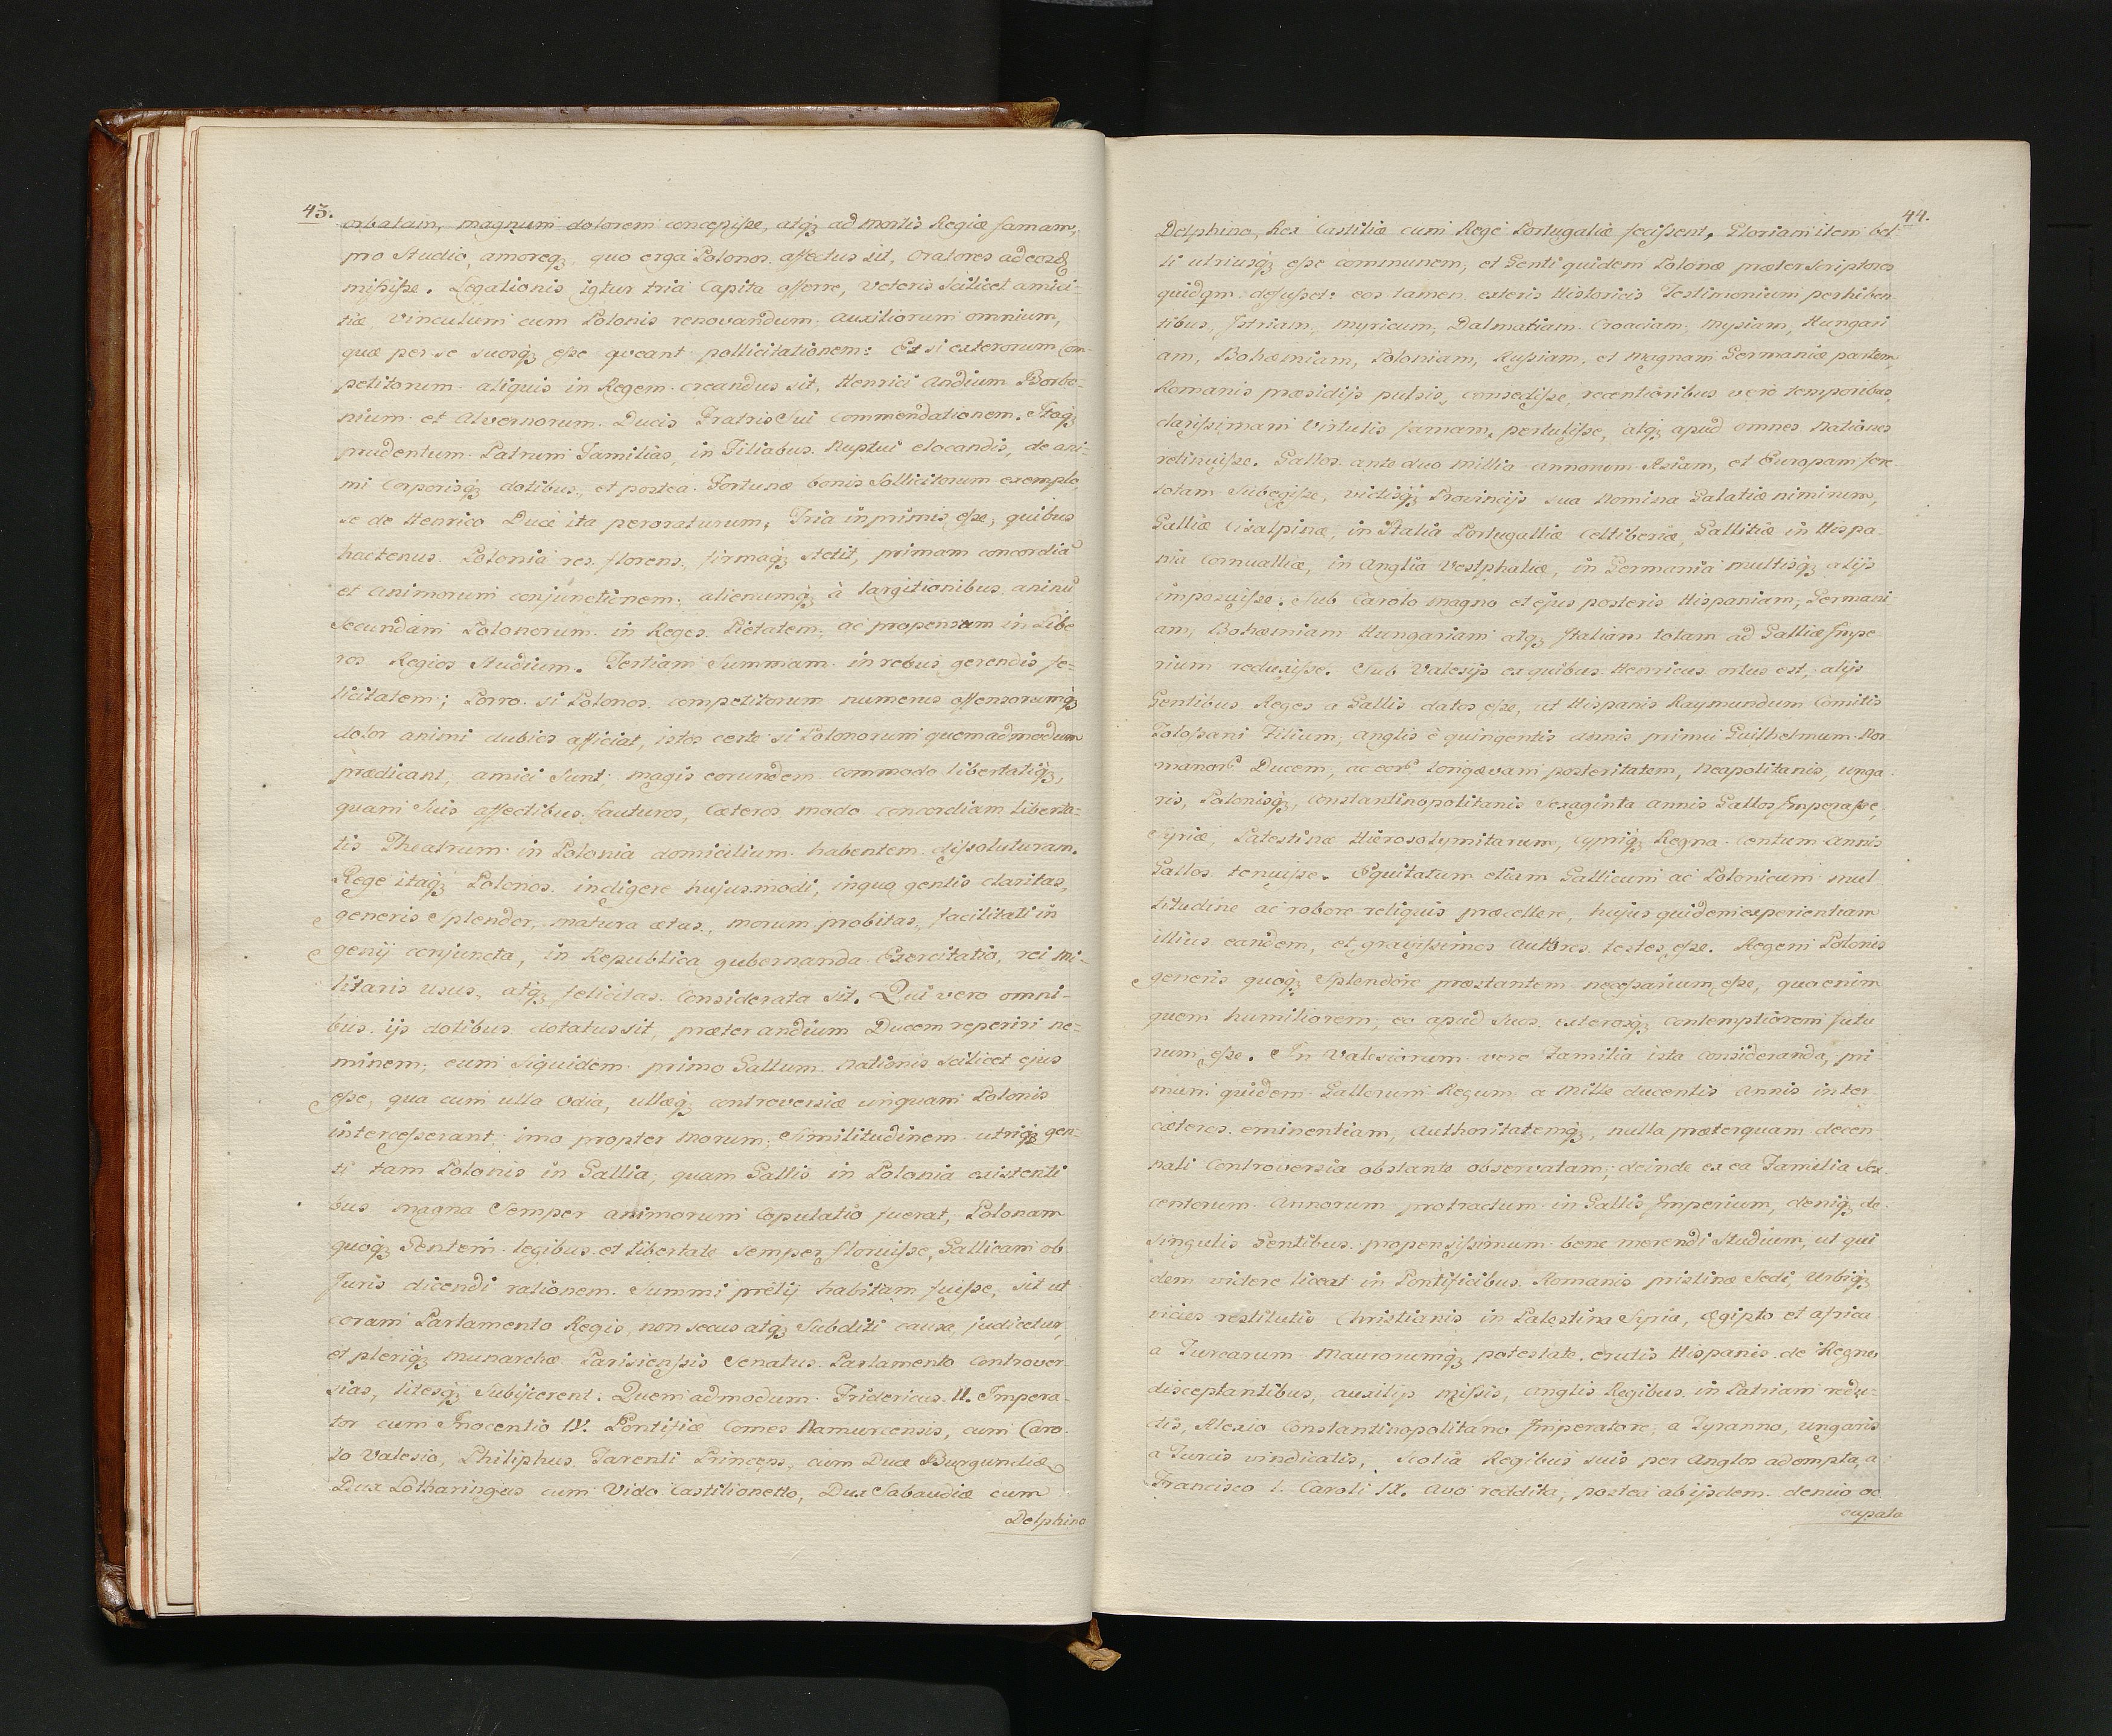 43.
orbatam, magnum dolorem concepiſse, atqȝ ad mortis Regiæ famam,
pro Studio, amoreqȝ, quo erga Polonos affectus sit, Oratores ad eosd
miſiſse. Legationis igtur tria Capita afferre, Veteris Scilicet amici-
tiæ Vinculum cum Polonis renovandum, auxiliorum omnium,
quæ per se suosqȝ eſse queant pollicitationem: Et si exterorum Com-
petitorum aliquis in Regem creandus sit, Henrici Andium Borbo-
nium et Alvernorum Ducis Fratris Sui Commendationem. Itaqȝ
prudentum Patrum Familias, in Filiabus Nuptui elocandis, de ani-
mi Corporisqȝ dotibus, et postea Fortunæ bonis Sollicitorum exemplo,
se de Henrico Duce ita peroraturum; Tria inprimis eſse, quibus
hactenus Polonia res florens, firmaqȝ stetit, primam concordiã
et Animorum conjunctionem, alienumqȝ à largitionibus animũ
Secundam Polonorum in Reges Pietatem, ac propensum in Libe
ros Regios Studium. Tertiam Summam in rebus gerendis fe-
licitatem; Porro si Polonos competitorum numerus offensorumqȝ
dolor animi dubios afficiat, istos certe si Polonorum quemadmodum
prædicant, amici Sunt magis eorundem commodo libertatiqȝ,
quam Suis affectibus fauturos, Cæteros modo concordiam liberta-
tis Theatrum in Polonia domicilium habentem diſsoluturam.
Rege itaqȝ Polonos indigere hujusmodi, in quo gentis claritas,
generis Splendor, matura ætas, morum probitas, facilitati in
genij conjuncta, in Republica gubernanda Exercitatio, rei mi-
litaris usus, atqȝ felicitas Considerata sit. Qui vero omni-
bus ijs dotibus dotatus sit, præter Andium Ducem reperiri ne-
minem, eum Siquidem primo Gallum Nationis Scilicet ejus
eſse, qua cum ulla Odia, ullæqȝ controversiæ unquam Polonis
interceſserant, imo propter Morum Similitudinem utriqȝ gen-
ti tam Polonis in Gallia, quam Gallis in Polonia existenti
bus magna Semper animorum Copulatio fuerat, Polonam
quoqȝ Gentem legibus et libertate Semper floruiſse, Gallicam ob
Juris dicendi rationem Summi pretij habitam fuiſse, sit ut
coram Parlamento Regis, non secus atqȝ Subditi causa judicetur,
et pleriqȝ Munarchæ Parisienſis Senatus Parlamento Controver-
sias, litesqȝ Subijcerent. Quemadmodum Fridericus II. Impera-
tor cum Inocentio IV. Pontifice Comes Namurcensis, cum Caro-
lo Valesio, Philiphus Tarenti Princeps, cum Duce Burgundiæ
Dux Lotharingus cum Vido Castilionetto, Dux Sabaudiæ cum
Delphino
44.
Delphino, Rex Castiliæ cum Rege Portugaliæ feciſsent, Gloriam item bel-
li utriusqȝ eſse communem, et Genti quidem Polonæ præter Scriptores
quidqm defuſset: eos tamen exteris Historicis Testimonium perhiben-
tibus, Istriam, Myricum, Dalmatiam Croaciam, Mysiam, Hungari
am, Bohæmiam, Poloniam, Ruſsiam, et Magnam Germaniæ partem,
Romanis præsidijs pulsis, consediſse, recentioribus verò temporibus,
clariſsimam Virtutis famam pertuliſse, atqȝ apud omnes Nationes
retinuiſse. Gallos ante duo millia annorum Asiam, et Europam fere
totam Subegiſse, victisqȝ Provincijs sua Nomina Galatiæ nimirum,
Galliæ Cisalpinæ, in Italia Portugalliæ Celtiberiæ, Gallitiæ in Hispa-
nia Cornualliæ, in Anglia Vestphaliæ, in Germania multisqȝ alijs
imposuiſse. Sub Carolo Magno et ejus posteris Hispaniam, Germani
am, Bohæmiam Hungariam atqȝ Italiam totam ad Galliæ Impe
rium reduxiſse. Sub Valesijs ex quibus Henricus ortus est, alijs
Gentibus Reges a Gallis datos eſse, ut Hispanis Raymundum Comitis
Toloſani Filium, Anglis è quingentis annis primu Guilhelmum Nor
manorũ Ducem, ac eorũ longævam posteritatem, Neapolitanis, Unga-
ris, Polonisqȝ, Constantinopolitanis Sexaginta annis Gallos Imperaſse,
Syriæ, Palestinæ Hierosolymitarum, Cypriqȝ Regna Centum Annis
Gallos tenuiſse. Equitatum etiam Gallicum ac Polonicum mul
titudine ac robore reliquis præcellere, hujus quidem experientiam
illius eandem, et graviſsimos Authores testes eſse. Regem Polonis
generis quoqȝ Splendore præstantem neceſsarium eſse, quo enim
quem humiliorem, eo apud Suos exterosqȝ contemptiorem futu
rum eſse. In Valesiorum vero Familia ista Consideranda, pri
mum quidem Gallorum Regum a Mille ducentis Annis inter
cæteros eminentiam, Authoritatemqȝ, nulla præterquam decen
nali Controversia obstante observatam, deinde ex ea Familia Sex-
centorum Annorum protractum in Gallis Imperium, deniqȝ de
Singulis Gentibus propensiſsimum bene merendi Studium, ut qui
dem videre liceat in Pontificibus Romanis pristinæ Sedi, Urbiqȝ
vicies restitutis Christianis in Palestina Syria, Ægipto et Africa
a Turcarum Maurorumqȝ potestate erutis Hispanis de Regno
disceptantibus, auxilijs miſsis, Anglis Regibus in Patriam redu-
ctis, Alexio Constantinopolitano Imperatore, a Tyranno, Ungaris
a Turcis vindicatis, Scotia Regibus suis per Anglos adempta, a
Francisco I. Caroli IX. Avo reddita, postea ab ijsdem denuo oc
cupata